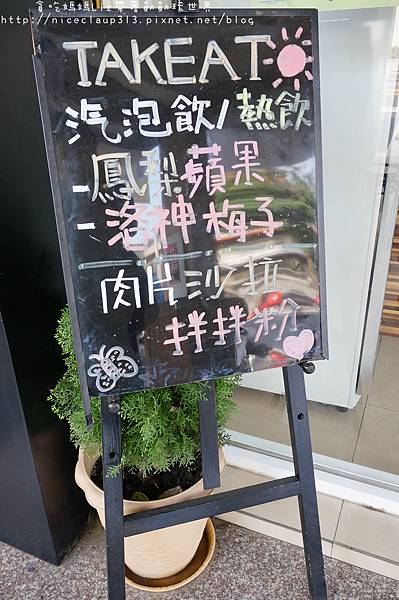 貪吃媽媽Liz帶著趴趴球世界
http://niceclaup313.pixnet.net/blog
TAKEAT
汽泡飲/熱飲
-鳳梨蘋果
-洛神梅子
肉片沙拉
拌拌粉